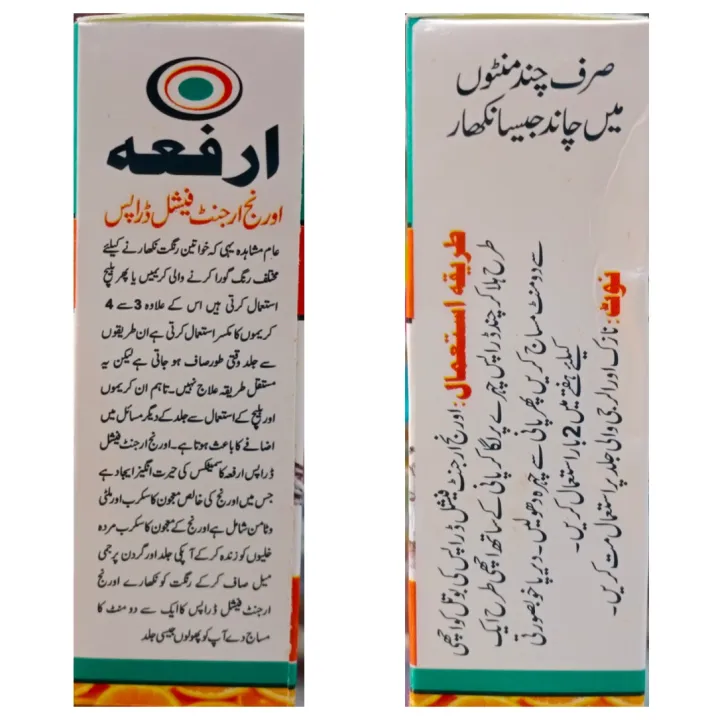 ارفعہ
اورنج ارجنٹ فیشل ڈراپس
عام مشاہدہ یہی کہ خواتین رنگت نکھارنے کیلئے
مختلف رنگ گورا کرنے والی کریمیں یا پھر بلیچ
استعمال کرتی ہیں اس کے علاوہ 3 سے 4
کریموں کا مکسر استعمال کرتی ہے ان طریقوں
سے جلد وقتی طور صاف ہو جاتی ہے لیکن یہ
مستقل طریقہ علاج نہیں۔ تاہم ان کریموں
اور بلیچ کے استعمال سے جلد کے دیگر مسائل میں
اضافے کا باعث ہوتا ہے۔ اورنج ارجنٹ فیشل
ڈراپس ارفعہ کاسمیٹکس کی حیرت انگیز ایجاد ہے
جس میں اورنج کی خالص معجون کا سکرب اور ملٹی
وٹامن شامل ہے اورنج کے معجون کا سکرب مردہ
خلیوں کو زندہ کر کے آپکی جلد اور گردن پر جمی
میل صاف کر کے رنگت کو نکھارے اورنج
ارجنٹ فیشل ڈراپس کا ایک سے دو منٹ کا
مساج دے آپ کو پھولوں جیسی جلد
صرف چند منٹوں
میں چاند جیسا نکھار
طریقہ استعمال: اورنج ارجنٹ فیشل ڈراپس کی بوتل کو اچھی
طرح ہلا کر چند ڈراپس چہرے پر لگا کر پانی کے ساتھ اچھی طرح ایک
سے دو منٹ مساج کریں پھر پانی سے چہرہ دھولیں۔ دیرپا خوبصورتی
کیلئے ہفتے میں 2 بار استعمال کریں۔
نوٹ: نازک اور الرجی والی جلد پر استعمال مت کریں۔